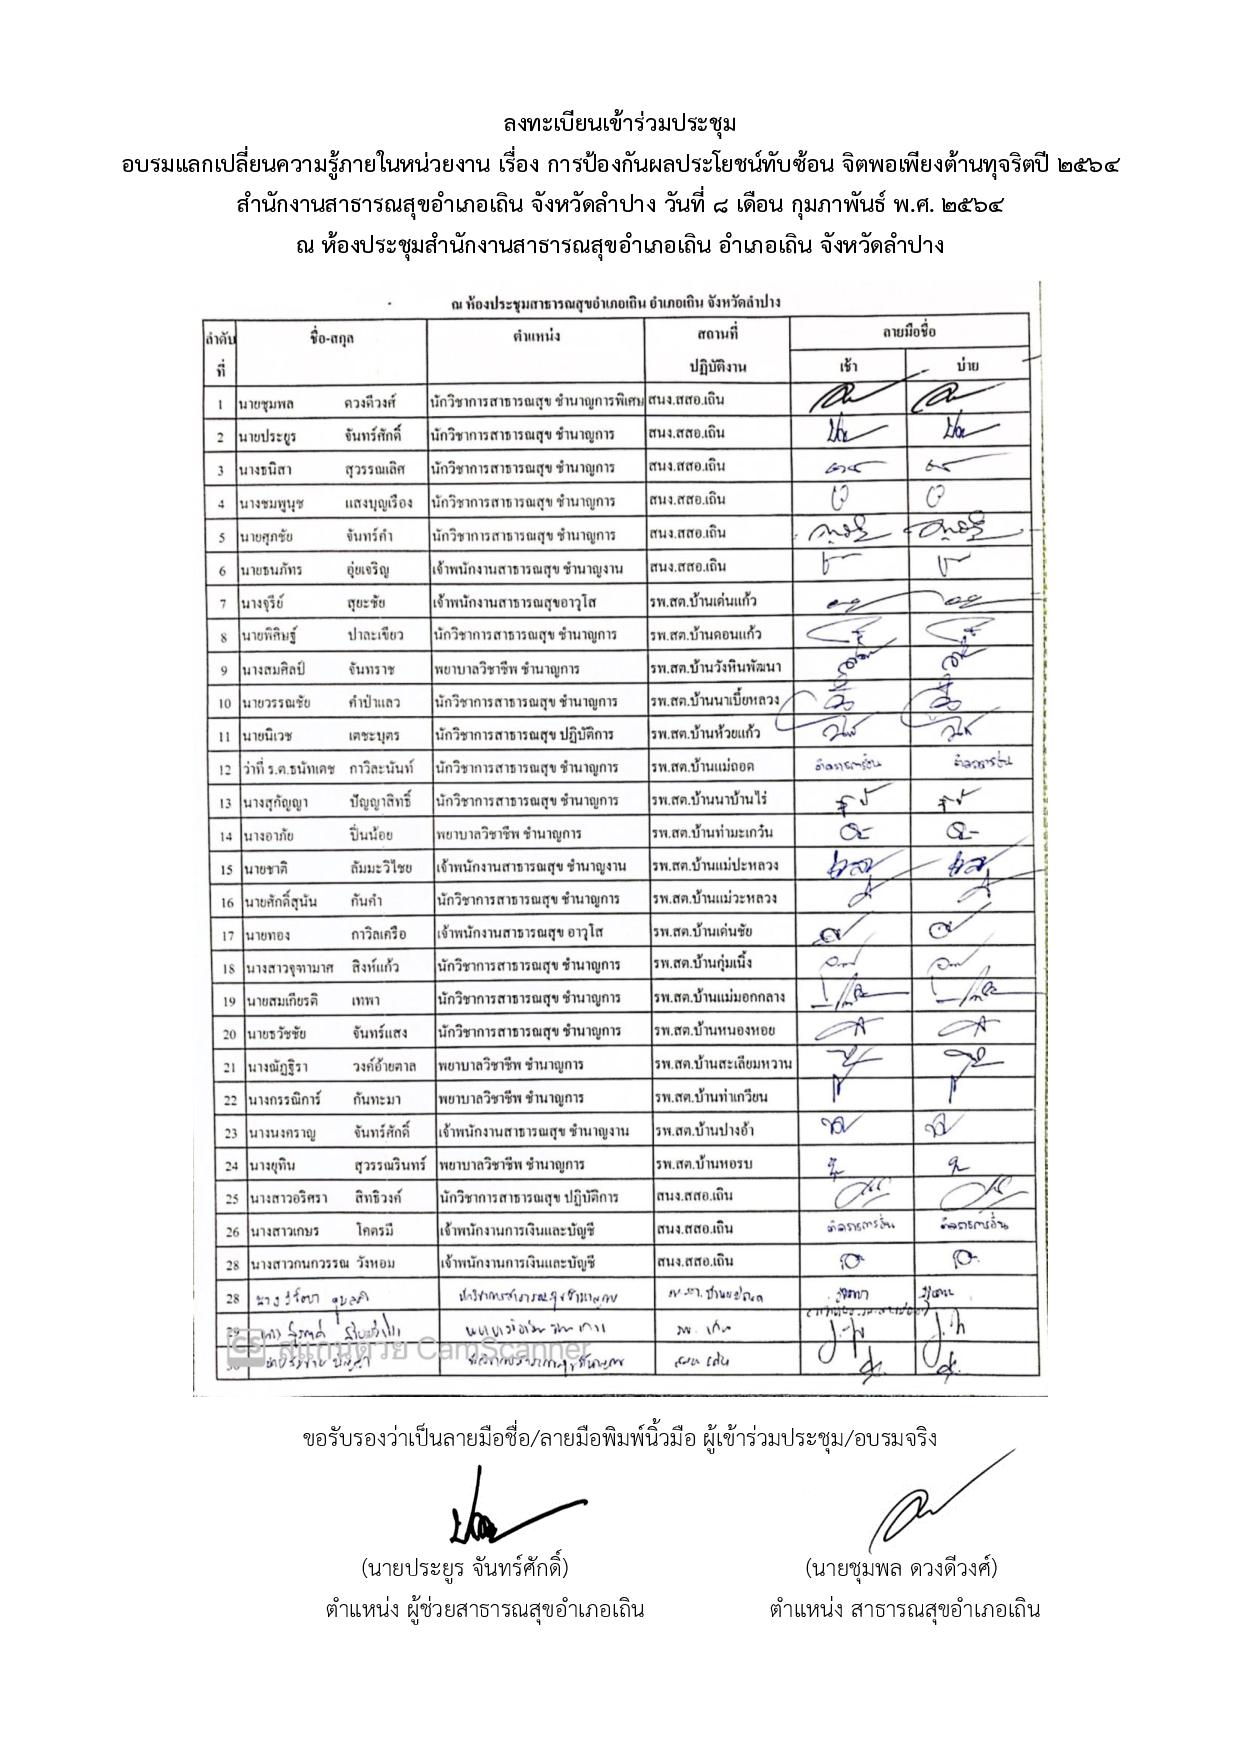 ลงทะเบียนเข้าร่วมประชุม
อบรมแลกเปลี่ยนความรู้ภายในหน่วยงาน เรื่อง การป้องกันผลประโยชน์ทับซ้อน จิตพอเพียงต้านทุจริตปี ๒๕๖๔
สำนักงานสาธารณสุขอำเภอเถิน จังหวัดลำปาง วันที่ ๘ เดือน กุมภาพันธ์ พ.ศ. ๒๕๖๔
ณ ห้องประชุมสำนักงานสาธารณสุขอำเภอเถิน อำเภอเถิน จังหวัดลำปาง
ณ ห้องประชุมสาธารณสุขอำเภอเถิน อำเภอเถิน จังหวัดลำปาง
ลำดับที่ ชื่อ-สกุล ตำแหน่ง สถานที่ปฏิบัติงาน ลายมือชื่อ
เช้า บ่าย
1 นายชุมพล ดวงดีวงศ์ นักวิชาการสาธารณสุข ชำนาญการพิเศษ สนง.สสอ.เถิน
2 นายประยูร จันทร์ศักดิ์ นักวิชาการสาธารณสุข ชำนาญการ สนง.สสอ.เถิน
3 นางธนิสา สุวรรณเลิศ นักวิชาการสาธารณสุข ชำนาญการ สนง.สสอ.เถิน
4 นางชมพูนุช แสงบุญเรือง นักวิชาการสาธารณสุข ชำนาญการ สนง.สสอ.เถิน
5 นายศุภชัย จันทร์คำ นักวิชาการสาธารณสุข ชำนาญการ สนง.สสอ.เถิน
6 นายธนภัทร อุ่ยเจริญ เจ้าพนักงานสาธารณสุข ชำนาญงาน สนง.สสอ.เถิน
7 นางจุรีย์ สุยะชัย เจ้าพนักงานสาธารณสุขอาวุโส รพ.สต.บ้านเด่นแก้ว
8 นายพิศิษฐ์ ปาละเขียว นักวิชาการสาธารณสุข ชำนาญการ รพ.สต.บ้านดอนแก้ว
9 นางสมศิลป์ จันทราช พยาบาลวิชาชีพ ชำนาญการ รพ.สต.บ้านวังหินพัฒนา
10 นายวรรณชัย คำป่าแลว นักวิชาการสาธารณสุข ชำนาญการ รพ.สต.บ้านนาเบี้ยหลวง
11 นายนิเวช เตชะบุตร นักวิชาการสาธารณสุข ปฏิบัติการ รพ.สต.บ้านห้วยแก้ว
12 ว่าที่ ร.ต.ธนัทเดช กาวิละนันท์ นักวิชาการสาธารณสุข ชำนาญการ รพ.สต.บ้านแม่ถอด ติดราชการอื่น ติดราชการอื่น
13 นางสุกัญญา ปัญญาสิทธิ์ นักวิชาการสาธารณสุข ชำนาญการ รพ.สต.บ้านนาบ้านไร่
14 นางอาภัย ปิ่นน้อย พยาบาลวิชาชีพ ชำนาญการ รพ.สต.บ้านท่ามะเกว๋น
15 นายชาติ ลัมมะวิไชย เจ้าพนักงานสาธารณสุข ชำนาญงาน รพ.สต.บ้านแม่ปะหลวง
16 นายศักดิ์สุนัน กันคำ นักวิชาการสาธารณสุข ชำนาญการ รพ.สต.บ้านแม่วะหลวง
17 นายทอง กาวิลเครือ เจ้าพนักงานสาธารณสุข อาวุโส รพ.สต.บ้านเด่นชัย
18 นางสาวจุฑามาศ สิงห์แก้ว นักวิชาการสาธารณสุข ชำนาญการ รพ.สต.บ้านกุ่มเนิ้ง
19 นายสมเกียรติ เทพา นักวิชาการสาธารณสุข ชำนาญการ รพ.สต.บ้านแม่มอกกลาง
20 นายธวัชชัย จันทร์แสง นักวิชาการสาธารณสุข ชำนาญการ รพ.สต.บ้านหนองหอย
21 นางณัฏฐิรา วงค์อ้ายตาล พยาบาลวิชาชีพ ชำนาญการ รพ.สต.บ้านสะเลียมหวาน
22 นางกรรณิการ์ กันทะมา พยาบาลวิชาชีพ ชำนาญการ รพ.สต.บ้านท่าเกวียน
23 นางนงคราญ จันทร์ศักดิ์ เจ้าพนักงานสาธารณสุข ชำนาญงาน รพ.สต.บ้านปางอ้า
24 นางยุทิน สุวรรณรินทร์ พยาบาลวิชาชีพ ชำนาญการ รพ.สต.บ้านหอรบ
25 นางสาวอริศรา สิทธิวงศ์ นักวิชาการสาธารณสุข ปฏิบัติการ สนง.สสอ.เถิน
26 นางสาวเกษร โคตรมี เจ้าพนักงานการเงินและบัญชี สนง.สสอ.เถิน ติดราชการอื่น ติดราชการอื่น
28 นางสาวกนกวรรณ วังหอม เจ้าพนักงานการเงินและบัญชี สนง.สสอ.เถิน
28 นาง นักวิชาการสาธารณสุขชำนาญการ
29
สแกนด้วย CamScanner
ขอรับรองว่าเป็นลายมือชื่อ/ลายมือพิมพ์นิ้วมือ ผู้เข้าร่วมประชุม/อบรมจริง
(นายประยูร จันทร์ศักดิ์) (นายชุมพล ดวงดีวงศ์)
ตำแหน่ง ผู้ช่วยสาธารณสุขอำเภอเถิน ตำแหน่ง สาธารณสุขอำเภอเถิน